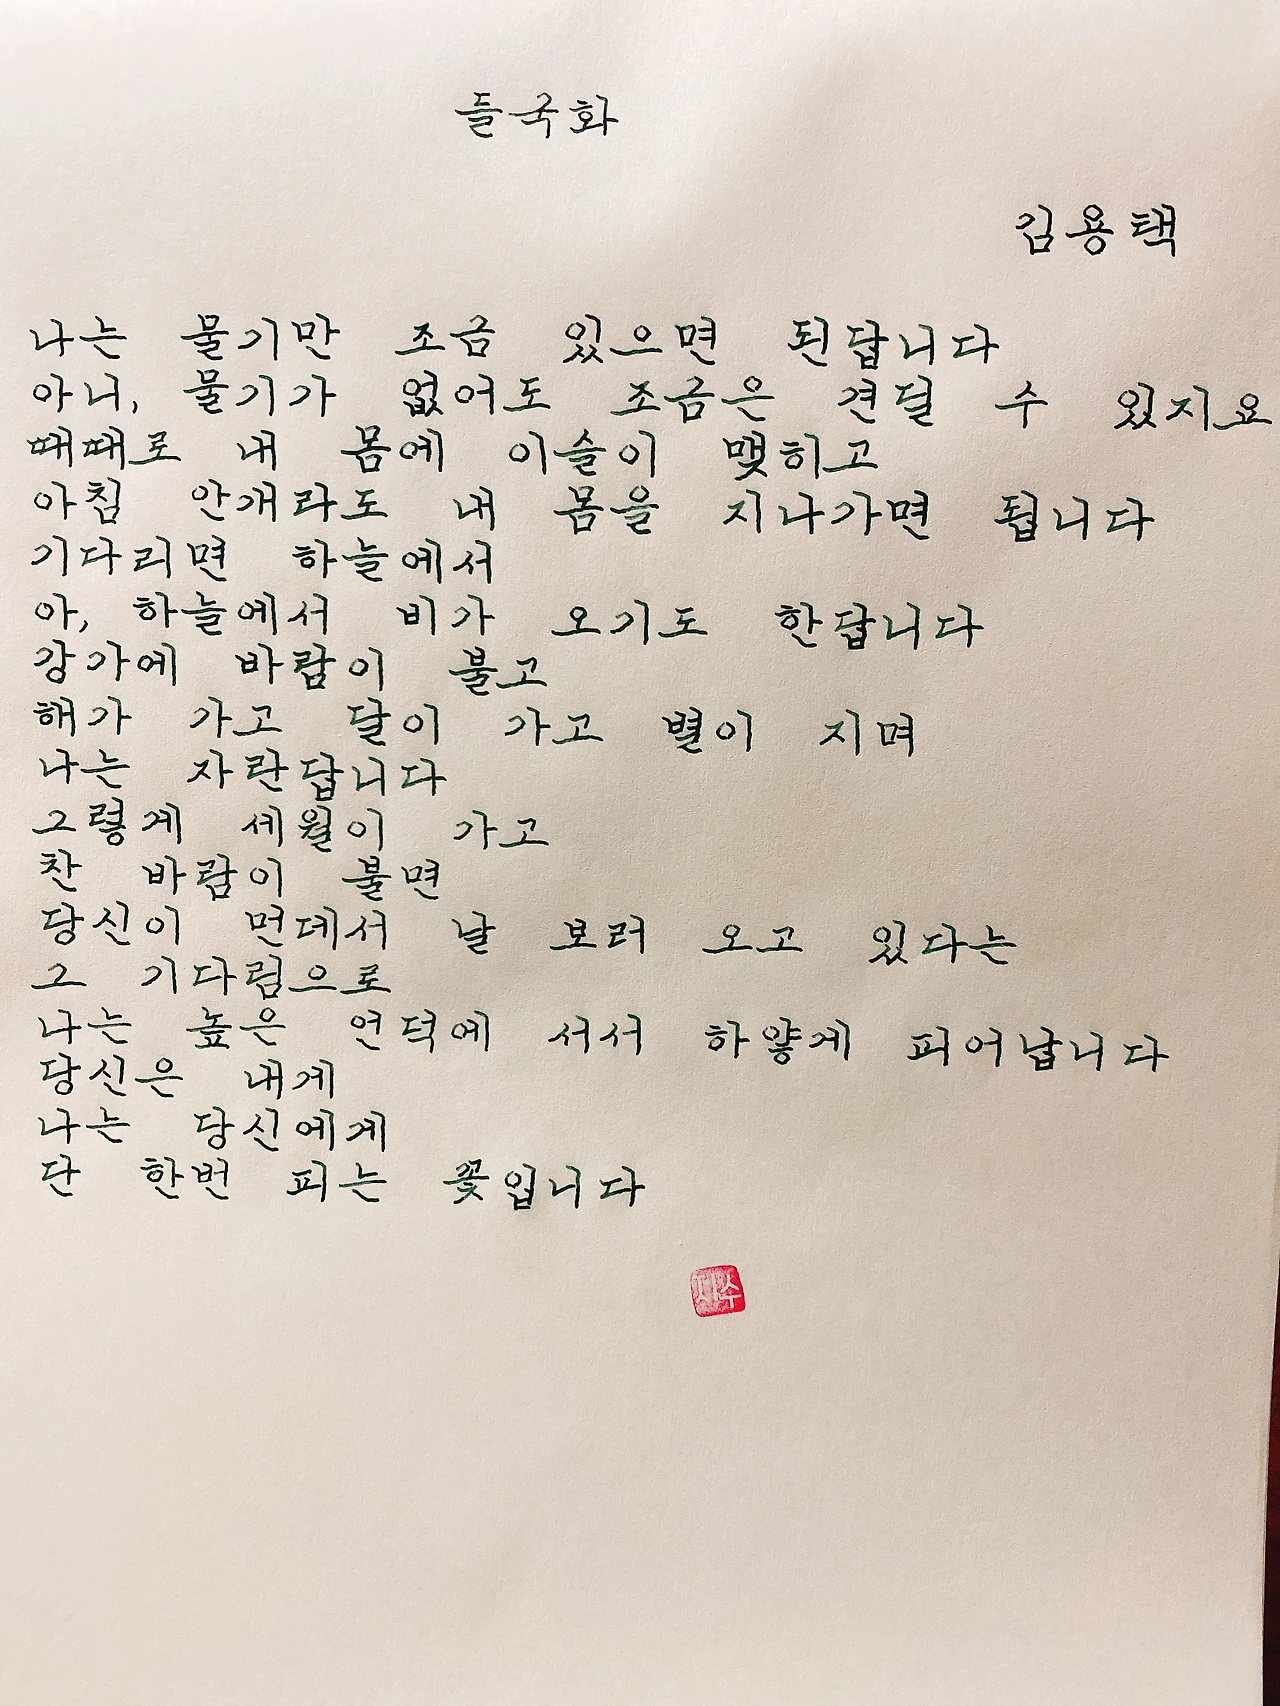 들국화
김용택
나는 물기만 조금 있으면 된답니다
아니, 물기가 없어도 조금은 견딜 수 있지요
때때로 내 몸에 이슬이 맺히고
아침 안개라도 내 몸을 지나가면 됩니다
기다리면 하늘에서
아, 하늘에서 비가 오기도 한답니다
강가에 바람이 불고
해가 가고 달이 가고 별이 지며
나는 자란답니다
그렇게 세월이 가고
찬 바람이 불면
당신이 먼데서 날 보러 오고 있다는
그 기다림으로
나는 높은 언덕에 서서 하얗게 피어납니다
당신은 내게
나는 당신에게
단 한번 피는 꽃입니다